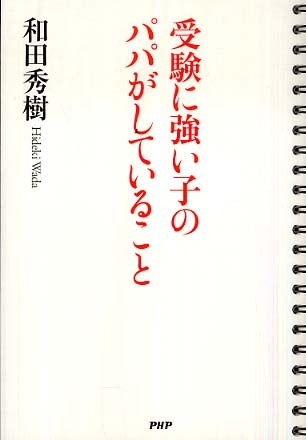 受験に強い子の
パパがしていること
和田秀樹
Hideki Wada
PHP